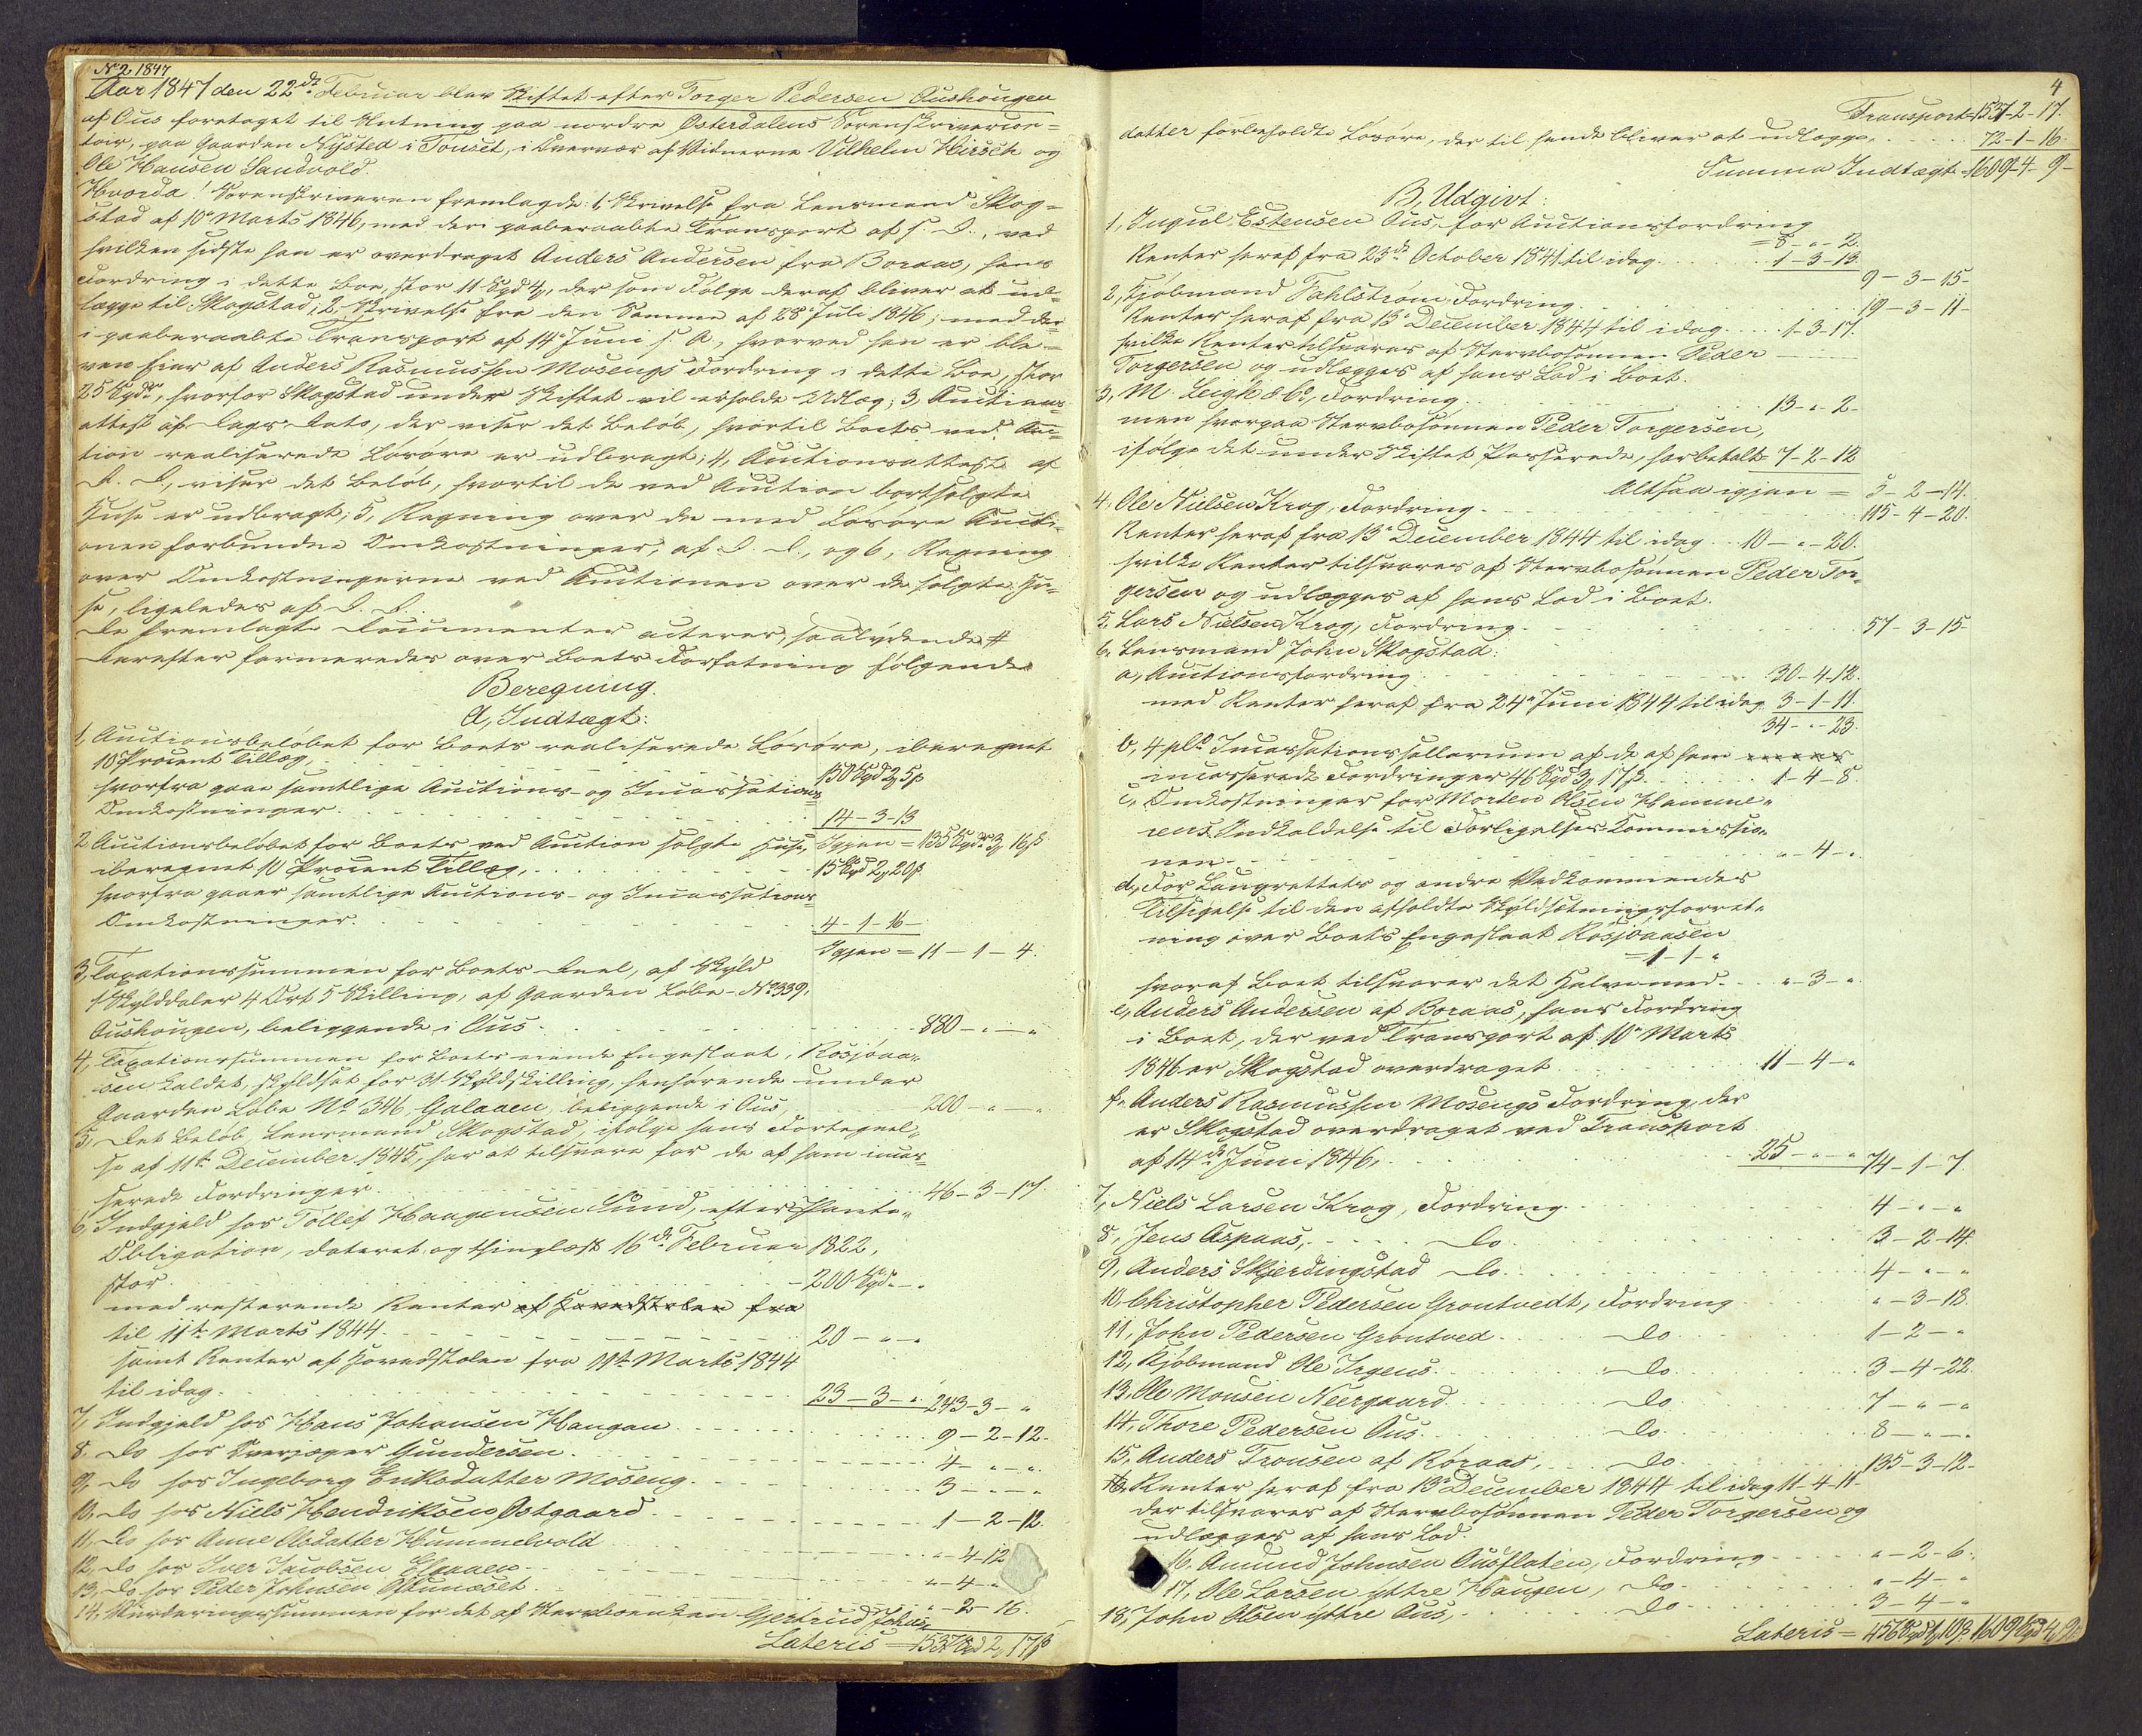 No 2 1847
Aar 1847 den 22de Februar blev Skiftet efter Torger Pedersen Aushougen
af Ous foretaget til Slutning paa nordre Østerdalens Sorenskrivercon=
toir, paa Gaarden Nysted i Tønset, i Overvær af Vidnerne Vilhelm Hirsch og
Ole Hansen Sandvold.
Hvorda! Sorenskriveren fremlagde: 1, Skrivelse fra Lensmand Skog=
stad af 10de Marts 1846, med deri paaberaabte Transport af s. D., ved
hvilken sidste han er overdraget Anders Andersen fra Boraas, hans
Fordring i dette Boe, stor 11 Spd 4, der som Følge deraf bliver at ud=
lægge til Skogstad; 2, Skrivelse fra den Samme af 28de Juli 1846, med der=
i paaberaabte Transport af 14de Juni s. A., hvorved han er ble=
ven Eier af Anders Rasmussen Mosengs Fordring i dette Boe, stor
25 Spdr, hvorfor Skogstad under Skiftet vil erholde Udlæg; 3, Auctions=
attest af Dags Dato, der viser det Beløb, hvortil Boets ved Auc=
tion realiserede Løsøre er udbragt; 4, Auctionsattest af
D. D., viser det Beløb, hvortil de ved Auction bortsolgte
Huse er udbragt; 5, Regning over de med Løsøre Aucti=
onen forbundne Omkostninger, af D. D., og 6, Regning
over Omkostningerne ved Auctionen over de solgte Hu=
se, ligeledes af D. D.
De fremlagte Documenter acteres, saalydende #
Derefter formeredes over Boets Forfatning følgende
Beregning
A, Indtægt:
1, Auctionsbeløbet for Boets realiserede Løsøre, iberegnet
10 Procent Tillæg, 150 Spd 2 5 s
hvorfra gaae samtlige Auctions- og Incassations=
Omkostninger. 14-3-13
2 Auctionsbeløbet for Boets ved Auction solgte Huse, Igjen = 135 Spdr 3 16 s
iberegnet 10 Procent Tillæg, 15 Spd 2 20 s
hvorfra gaaer samtlige Auctions- og Incassations=
Omkostninger. 4-1-16
Igjen = 11-1-4.
3, Taxationssummen for Boets Deel, af Skyld
1 Skylddaler 4 Ort 5 Skilling, af Gaarden Løbe-No 339,
Aushougen, beliggende i Ous 880-"-"
4, Taxationssummen for Boets eiende Engeslaat, Rosjøaa=
sen kaldet, skyldsat for 31 Skyldskilling, henhørende under
Gaarden Løbe No 346, Galaaen, beliggende i Ous 200-"-"
5, Det Beløb, Lensmand Skogstad, ifølge hans Fortegnel=
se af 11te December 1845, har at tilsvare for de af ham incas=
serede Fordringer 46-3-17.
6, Indgjæld hos Tollef Haagensen Sund, efter Pante=
Obligation, dateret og thinglæst 16de Februar 1822,
stor 200 Spd " "
med resterende Renter af Hovedstolen fra
til 11te Marts 1844 20-"-"
samt Renter af Hovedstolen fra 11te Marts 1844
til idag. 23-3-" 243-3-"
7, Indgjæld hos Hans Johansen Haugan 9-2-12.
8. Do hos Overjæger Gundersen. 4-"-"
9, Do hos Ingeborg Eriksdatter Moseng. 3-"-"
10, Do hos Niels Hendriksen Østgaard 1-2-12
11, Do hos Anne Olsdatter Hummelvold "-4-12
12, Do hos Iver Jacobsen "-4-"
13, Do hos Peder Johnsen "-2-16.
14, Vurderingssummen for det af Stervboenken Gjertrud Johns=
Lateris = 1537 Spd 2 17 s
4
Transport 1537-2-17.
datter forbeholdte Løsøre, der til hende bliver at udlægge, 72-1-16
Summa Indtægt = 1609-4-9-
B, Udgivt:
1, Ingul Estensen Ous, for Auctionsfordring
= 8-"-2.
Renter heraf fra 23de October 1841 til idag 1-3-13.
9-3-15-
2, Kjøbmand Dahlstrøm Fordring 19-3-11-
Renter heraf fra 13de December 1844 til idag 1-3-17.
hvilke Renter tilsvares af Stervbosønnen Peder
Torgersen og udlægges af hans Lod i Boet.
3, M. Leigh & Co, Fordring 13-"-2-
men hvorpaa Stervbosønnen Peder Torgersen,
ifølge det under Skiftet Passerede, har betalt 7-2-12
Altsaa igjen = 5-2-14.
4, Ole Nielsen Krog, Fordring 115-4-20.
Renter heraf fra 13de December 1844 til idag 10-"-20.
hvilke Renter tilsvares af Stervbosønnen Peder Tor=
gersen og udlægges af hans Lod i Boet.
5. Lars Nielsen Krog, Fordring 57-3-15-
6, Lensmand John Skogstad:
a, Auctionsfordring 30-4-12.
med Renter heraf fra 24de Juni 1844 til idag 3-1-11.
34-"-23.
b, 4 pCt Incassationssallarium af de af ham
incasserede Fordringer 46 Spd 3 17 s. 1-4-8.
c, Omkostninger for Morten Olsen Hamme=
rens Indkaldelse til Forligelses-Commissio=
nen "-4-"
d, For Laugrettets og andre Vedkommendes
Tilsigelse til den afholdte Skyldsætningsforret=
ning over Boets Engeslaat Rosjøaasen
=1-1-"
hvoraf Boet tilsvarer det Halve med "-3-"
e, Anders Andersen af Boraas, hans Fordring
i Boet, der ved Transport af 10de Marts
1846 er Skogstad overdraget 11-4-"
f, Anders Rasmussen Mosengs Fordring, der
er Skogstad overdraget ved Transport
af 14de Juni 1846, 25-"-" 74-1-7.
7, Niels Larsen Krog, Fordring 4-"-"
8, Jens Aspaas, Do 3-2-14.
9, Anders Skjerdingstad Do 4-"-"
10, Christopher Pedersen Grøntvedt, Fordring "-3-18.
11, John Pedersen Grøntved Do 1-2-"
12, Kjøbmand Ole Irgens Do 3-4-22.
13, Ole Monsen Neergaard Do 7-"-"
14, Thore Pedersen Ous Do 8-"-"
15, Anders Tronsen af Røraas, Do 135-3-12-
16, Renter heraf fra 13de December 1844 til idag 11-4-11-
der tilsvares af Stervbosønnen Peder Torgersen og
udlægges af hans Lod.
16. Amund Johnsen Ousflaten, Fordring "-2-6.
17, Ole Larsen yttre Haugen, Do "-4-"
18, John Olsen yttre Ous, Do 3-4-"
Lateris = 456 Spd 1 10 s. 1609 Spd 4 9 s